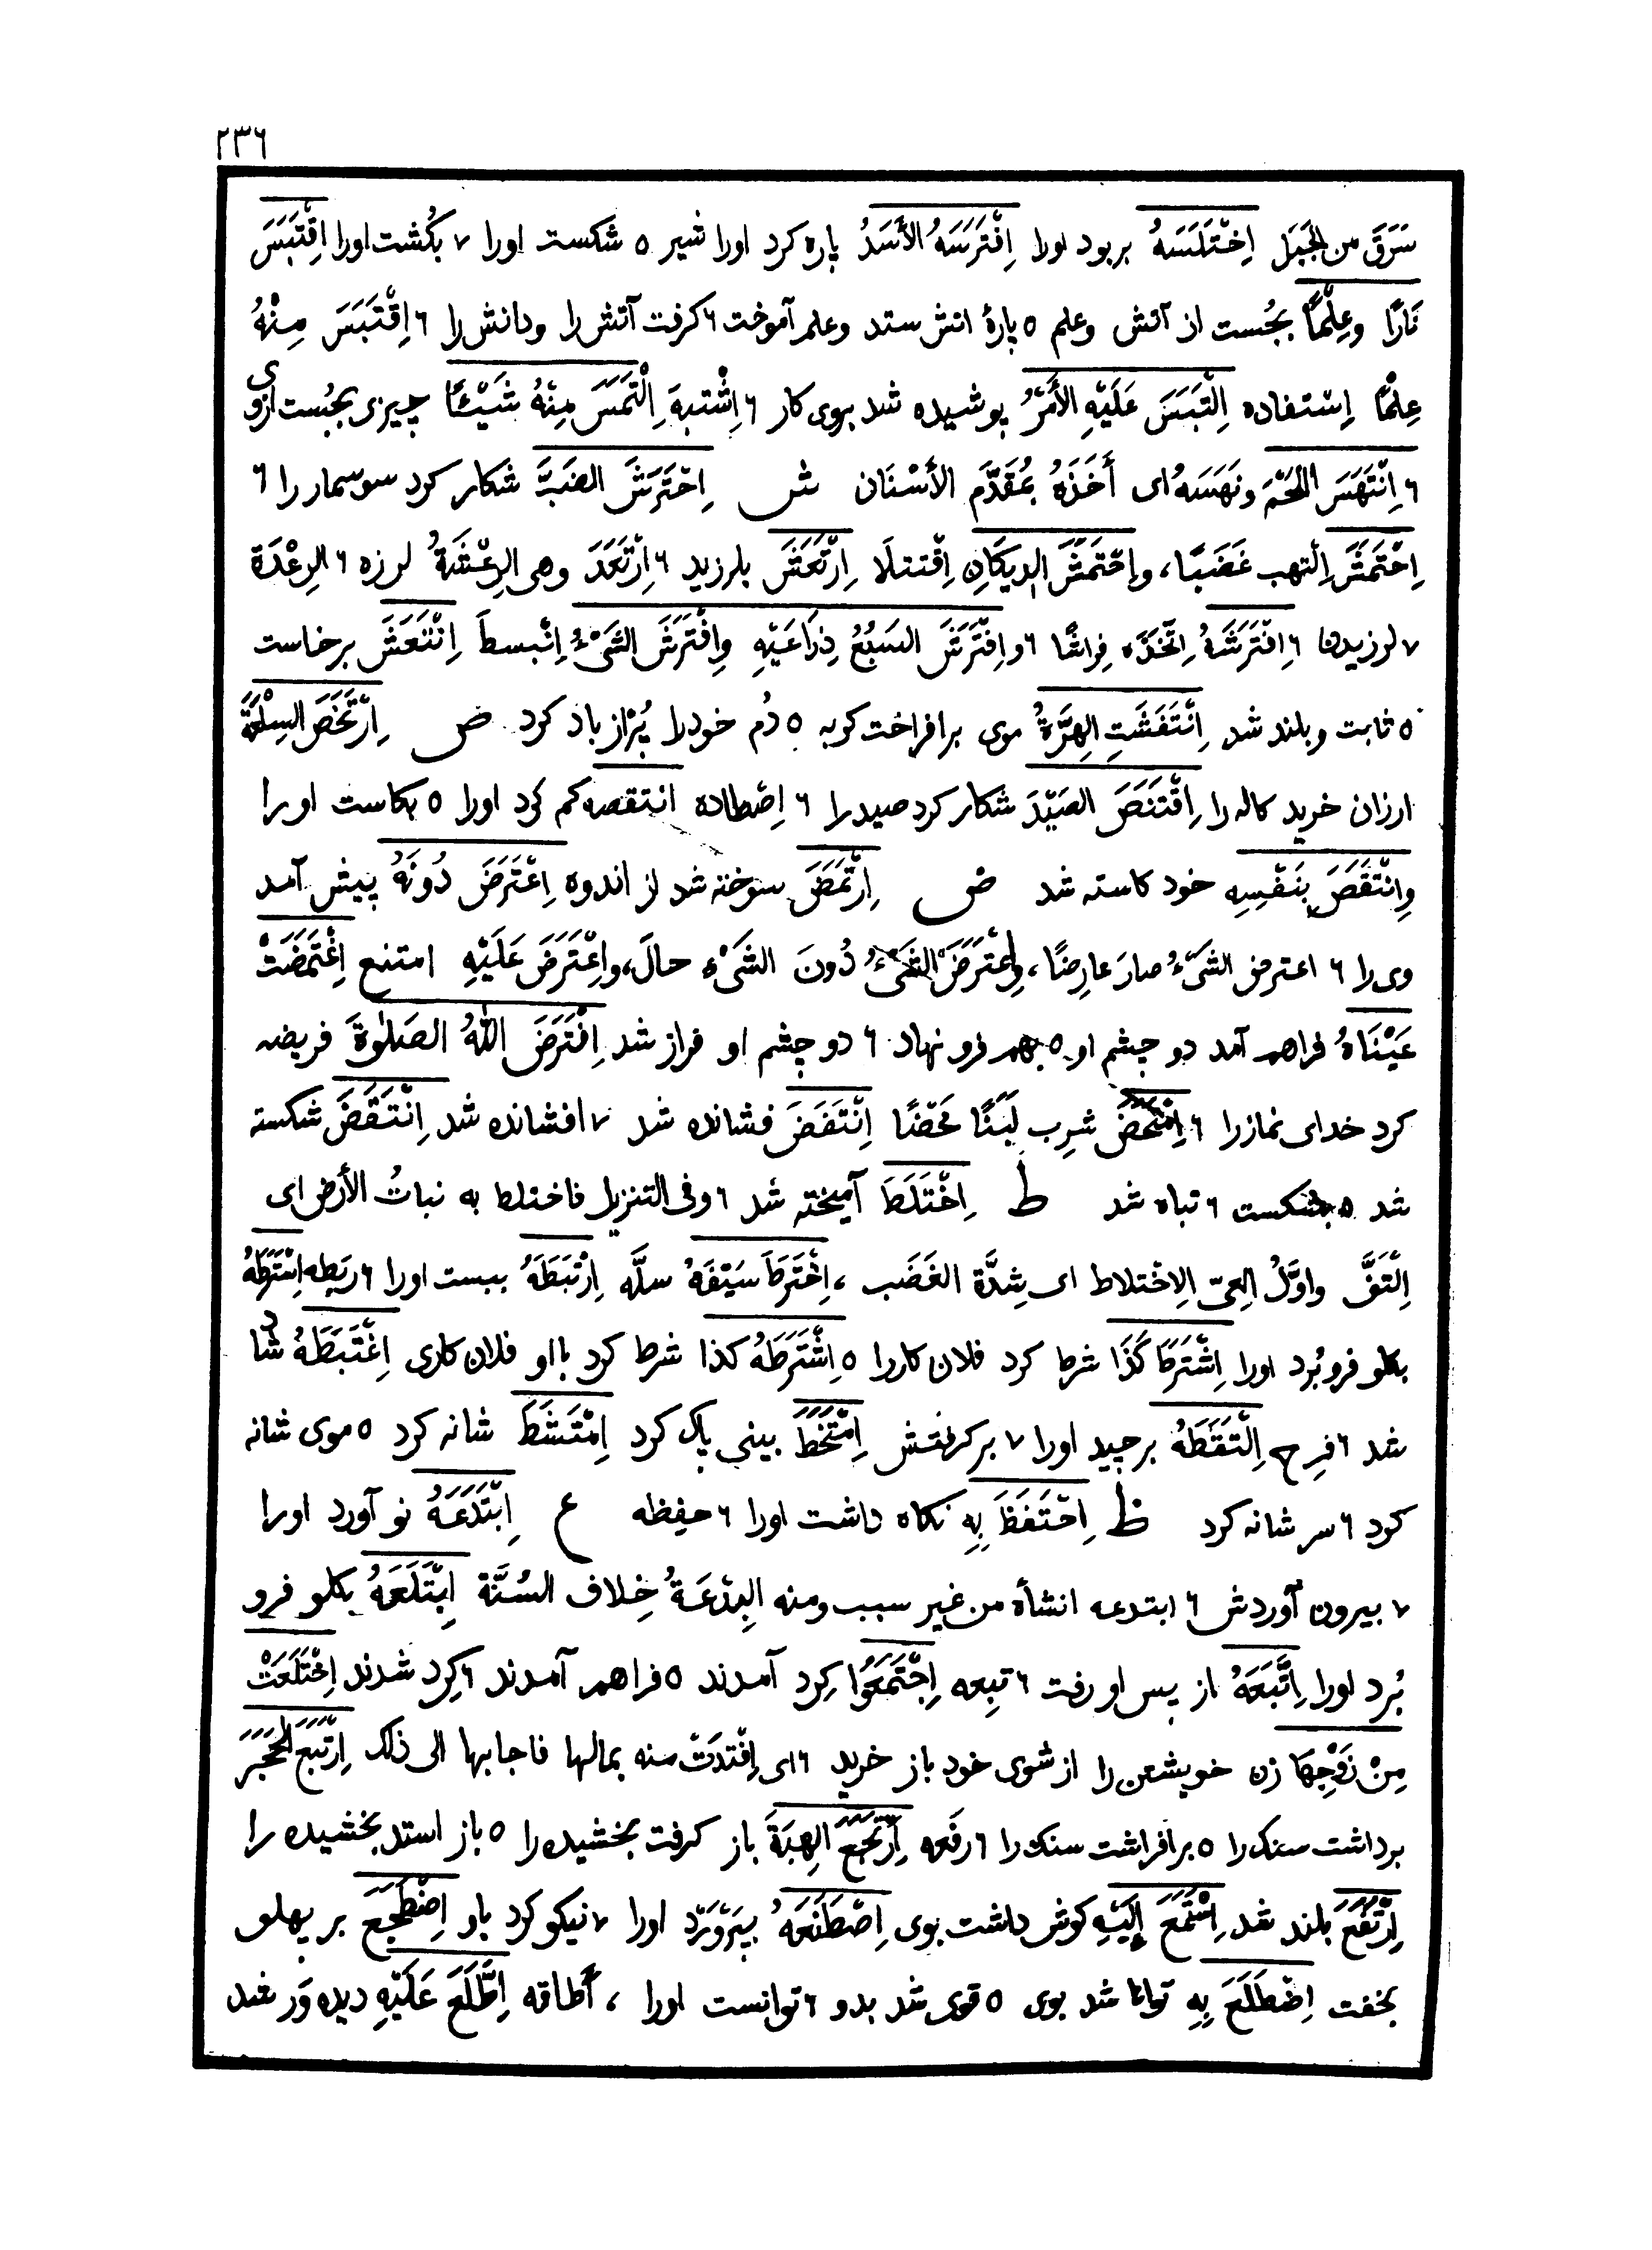 ٢٣٦
سَرَقَ من الجَبَل اِخْتَلَسَهُ بربود اورا اِفْتَرَسَهُ الأَسَدُ پاره کرد اورا شیر ٥ شکست اورا ٧ بکُشت اورا اِقْتَبَسَ
نَارًا وعِلْمًا بجُست از آتش وعلم ٥ پارهٔ اتش ستد وعلم آموخت ٦ کرفت آتش را ودانش را ٦ اِقْتَبَسَ مِنْهُ
عِلْمًا اِسْتفاده اِلْتَبَسَ عَلَيْهِ الأَمْرُ پوشیده شد بروی کار ٦ اِشْتبهَ اِلْتَمَسَ مِنْهُ شَيْئًا چیزی بجُست ازوی
٦ اِنْتَهَسَ اللَّحْمَ ونَهَسَهُ ای أَخَذَهُ بمُقَدَّم الأَسْنَان ش اِحْتَرَشَ الضَبَّ شکار کرد سوسمار را ٦
اِحْتَمَشَ اِلْتهب غَضَبًا، واِحْتَمَشَ الدِيكَانِ اِقْتتلَا اِرْتَعَشَ بلرزید ٦ اِرْتَعَدَ وهی الرِعْشَةُ لرزه ٦ الرِعْدَة
٧ لرزیدن ٦ اِفْتَرَشَهُ اِتَّخَذَه فِراشًا ٦ واِفْتَرَشَ السَبُعُ ذِرَاعَيْهِ واِفْتَرَشَ الشَىْءُ اِنْبسطَ اِنْتَعَشَ برخاست
٥ ثابت وبلند شد اِنْتَفَشَتِ الهِرَّةُ موی برافراخت کربه ٥ دُم خودرا پُرْاز باد کرد ص اِرْتَخَصَ السِلْعَةَ
ارزان خرید کاله را اِقْتَنَصَ الصَيْدَ شکار کرد صید را ٦ اِصْطاده انتقصه کم کرد اورا ٥ بکاست او را
وِانْتَقَصَ بِنَفْسِهِ خود کاسته شد ض اِرْتَمَضَ سوخته شد از اندوه اِعْتَرَضَ دُونَهُ پیش آمد
وی را ٦ اعترض الشَىْءُ صارَ عارِضًا، واِعْتَرَضَ الشَىْءُ دُونَ الشَىْءِ حالَ، واِعْتَرَضَ عَلَيْهِ امتنع اِغْتَمَضَتْ
عَيْنَاهُ فراهم آمد دو چشم او ٥ بهم فرو نهاد ٦ دو چشم او فراز شد اِفْتَرَضَ اللهُ الصَلوٰةَ فریضه
کرد خدای نماز را ٦ اِمْتَحَضَ شرِب لَبَنًا مَحْضًا اِنْتَفَضَ فشانده شد ٧ افشانده شد اِنْتَقَضَ شکسته
شد ٥ بشکست ٦ تباه شد ط اِخْتَلَطَ آمیخته شد ٦ وفی التنزیل فاختلط به نباتُ الأرض ای
اِلْتَفَّ واوَّلُ العِیّ الاِخْتلاط ای شِدَّة الغَضَب، اِخْتَرَطَ سَيْفَهُ سلَّه اِرْتَبَطَهُ ببست اورا ٦ ربَطه اِسْتَرَطَهُ
بکلو فروبُرد اورا اِشْتَرَطَ كَذَا شرط کرد فلان کاررا ٥ اِشْتَرَطَهُ كذا شرط کرد بااو فلان کاری اِغْتَبَطَهُ شاد
شد ٦ فرِح اِلْتَقَطَهُ برچید اورا ٧ برکرفتش اِمْتَخَطَ بینی پاک کرد اِمْتَشَطَ شانه کرد ٥ موی شانه
کرد ٦ سر شانه کرد ظ اِحْتَفَظَ بِهِ نکاه داشت اورا ٦ حفِظه ع اِبْتَدَعَهُ نو آورد اورا
٧ بیرون آوردش ٦ ابتدعه انشأه من غیر سبب ومنه البِدْعَةُ خِلاف السُنَّة اِبْتَلَعَهُ بکلو فرو
بُرد اورا اِتَّبَعَهُ از پس او رفت ٦ تبِعه اِجْتَمَعُوا کِرد آمدند ٥ فراهم آمدند ٦ کِرد شدند اِخْتَلَعَتْ
مِنْ زَوْجِهَا زن خویشتن را از شوی خود باز خرید ٦ ای اِفْتَدَتْ منه بمالها فاجابها الی ذلک اِرْتَبَعَ الحَجَرَ
برداشت سنک را ٥ برافراشت سنک را ٦ رفَعه اِرْتَجَعَ الهِبَةَ باز کرفت بخشیده را ٥ باز استد بخشیده را
اِرْتَفَعَ بلند شد اِسْتَمَعَ إِلَيْهِ کوش داشت بوی اِصْطَنَعَهُ بپَرْوَرْد اورا ٧ نیکو کرد باو اِضْطَجَعَ بر پهلو
بخفت اِضْطَلَعَ بِهِ توانا شد بوی ٥ قوی شد بدو ٦ توانست اورا، أطاقه اِطَّلَعَ عَلَيْهِ دیده وَر شد